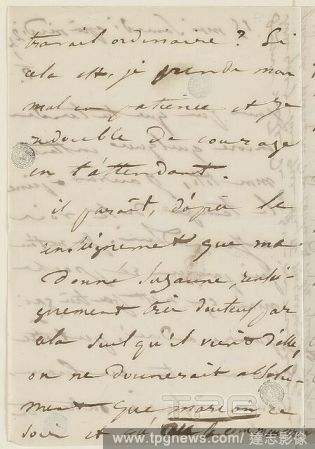 travail ordinaire ? Si
cela est, je prends mon
mal en patience et je
redouble de courage
en t'attendant.
il paraît, d'après le
renseignement que m'a
donné Suzanne, rensei-
gnement très douteux par
cela seul qu'il vient d'elle,
on ne donnerait absolu-
ment que marion ce
soir et
TPG
www.tpgnews.com / 達志影像